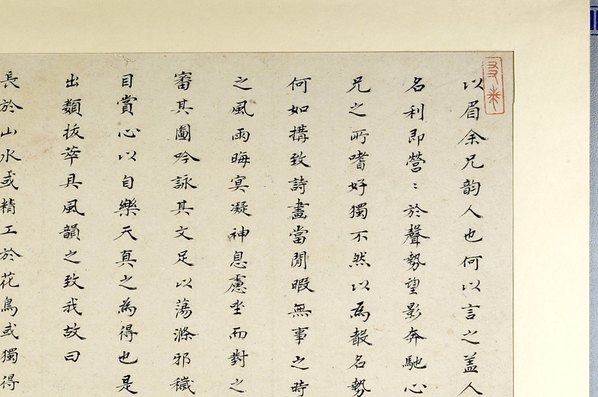 以眉余兄韵人也何以言之盖人
名利即營〻於聲勢望影奔馳心
兄之所嗜好獨不然以為名勢
何如搆致詩畫當閒暇無事之時
之風雨晦冥凝神息慮坐而對之
審其圖吟詠其文足以蕩滌邪穢
目賞心以自樂天真之為得也是
出類拔萃具風韻之致我故曰
長於山水或精工於花鳥或獨得